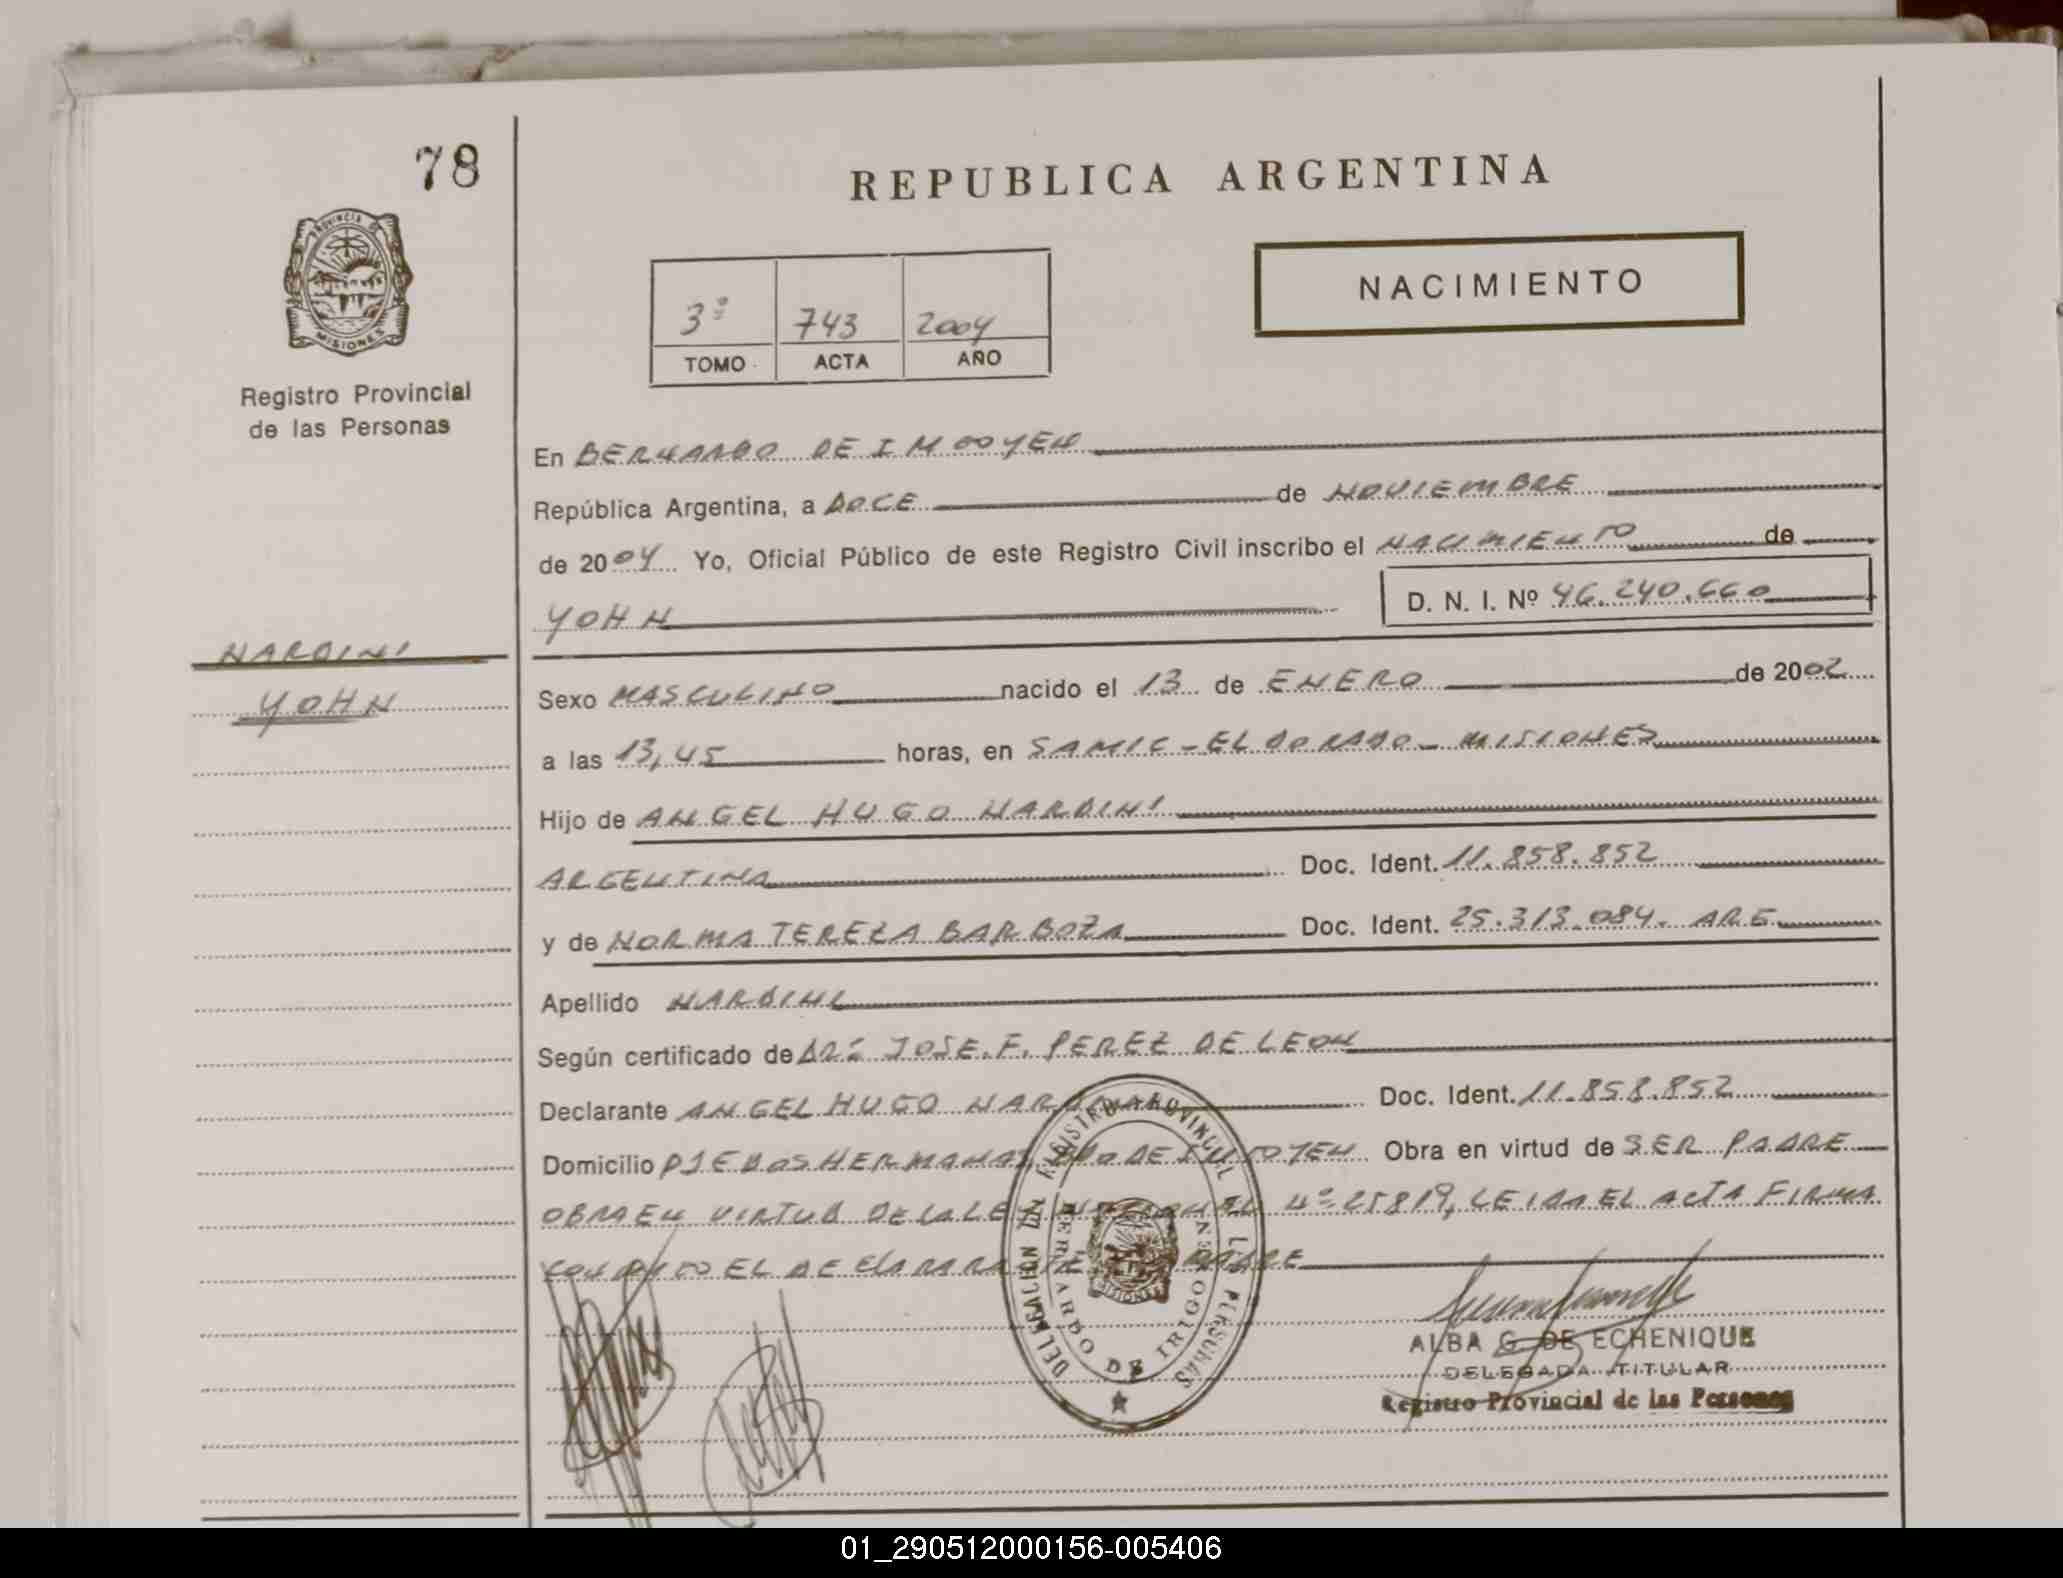 78
REPUBLICA ARGENTINA
PROVINCIA DE
MISIONES
NACIMIENTO
3º 743 2004
TOMO ACTA AÑO
Registro Provincial
de las Personas
En BERNARDO DE IRIGOYEN
República Argentina, a DOCE de NOVIEMBRE
de 2004 Yo, Oficial Público de este Registro Civil inscribo el NACIMIENTO de
YOHN D. N. I. Nº 46.240.660
NARDINI
YOHN
Sexo MASCULINO nacido el 13 de ENERO de 2002
a las 13,45 horas, en SAMIC - ELDORADO - MISIONES
Hijo de ANGEL HUGO NARDINI
ARGENTINA Doc. Ident. 11.858.852
y de NORMA TEREZA BARBOZA Doc. Ident. 25.313.084. ARG
Apellido NARDINI
Según certificado de JOSE. F. PEREZ DE LEON
Declarante ANGEL HUGO NARDINI Doc. Ident. 11.858.852
Domicilio HERMANAS, BDO DE IRIGOYEN Obra en virtud de SER PADRE
OBRA EN VIRTUD DE LA LEY NACIONAL Nº 25819, LEIDA EL ACTA FIRMA
CONMIGO EL DECLARANTE PADRE
DELEGACION DEL REGISTRO PROVINCIAL DE LAS PERSONAS
BERNARDO DE IRIGOYEN
MISIONES
ALBA G. DE ECHENIQUE
DELEGADA TITULAR
Registro Provincial de las Personas
01_290512000156-005406